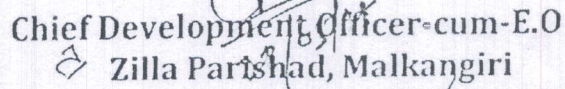 Chief Development Officer-cum-E.O
Zilla Parishad, Malkangiri